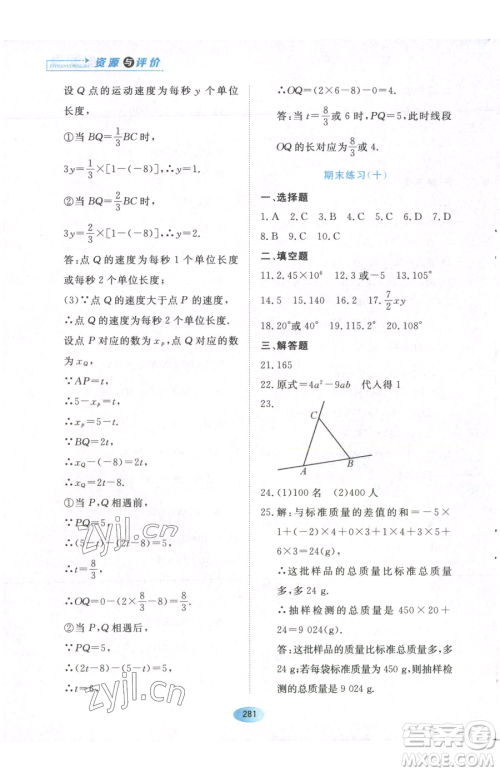 资源与评价
设 Q 点的运动速度为每秒 y 个单位
长度,
①当 BQ=1/3BC 时,
3y=1/3×[1-(-8)].
②当 BQ=2/3BC 时,
3y=2/3×[1-(-8)].
答:点 Q 的速度为每秒 1 个单位长度
或每秒 2 个单位长度;
(3)∵点 Q 的速度大于点 P 的速度,
∴点 Q 的速度为每秒 2 个单位长度.
设点 P 对应的数为x_P,点 Q 对应的
数为x_Q,
∵AP=t,
∴5-x_P=t,
∴x_P=5-t,
∵BQ=2t,
∴x_Q-(-8)=2t,
∴x_Q=2t-8,
①当 P,Q 相遇前,
∵PQ=5,
∴(5-t)-(2t-8)=5,
∴t=8/3,
∴OQ=0-(2×8/3-8)=8/3.
②当 P,Q 相遇后,
∵PQ=5,
∴(2t-8)-(5-t)=5,
∴t=6,
∴OQ=(2×6-8)-0=4.
答:当 t=8/3或 6 时,PQ=5,此时线段
OQ 的长对应为8/3或 4.
期末练习(十)
一、选择题
1.A 2.C 3.C 4.B 5.C 6.D 7.D
8.B 9.C 10.C
二、填空题
11.2.45×10⁶ 12.3 或-5 13.-5
14.5 15.140 16.2 17.7/2xy
18.20°或 40° 19.115.2° 20.40°
三、解答题
21.165
22.原式=4a²-9ab 代入得 1
23.
C
A
B
24.(1)100 名 (2)400 人
25.解:与标准质量的差值的和=-5×
1+(-2)×4+0×3+1×4+3×5+
6×3=24(g).
∴这批样品的总质量比标准总质量
多,多 24 g.
∴抽样检测的总质量=450×20+
24=9 024(g).
答:这批样品的总质量比标准总质量多,多
24 g;若每袋标准质量为 450 g,则抽样检测
的总质量是 9 024 g.
zyjl.cn
zyjl.cn
281
答案圈
MXQE.COM